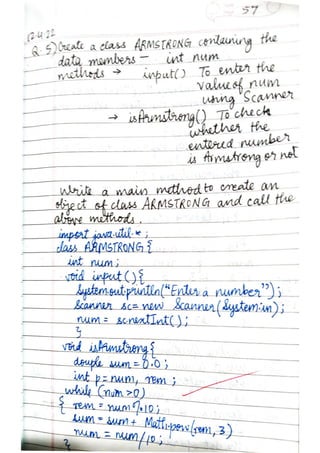 57
12.4.22
Q.5) Create a class ARMSTRONG containing the
data members - int num
methods → input() To enter the
value of num
using Scanner
→ isArmstrong() To check
whether the
entered number
is Armstrong or not
Write a main method to create an
object of class ARMSTRONG and call the
above methods.
import java.util.*;
class ARMSTRONG {
int num;
void input(){
System.out.println("Enter a number");
Scanner sc = new Scanner(System.in);
num = sc.nextInt();
}
void isArmstrong{
double sum = 0.0;
int p = num, rem;
while (num > 0)
{ rem = num % 10;
sum = sum + Math.pow(rem, 3)
num = num/10;
}